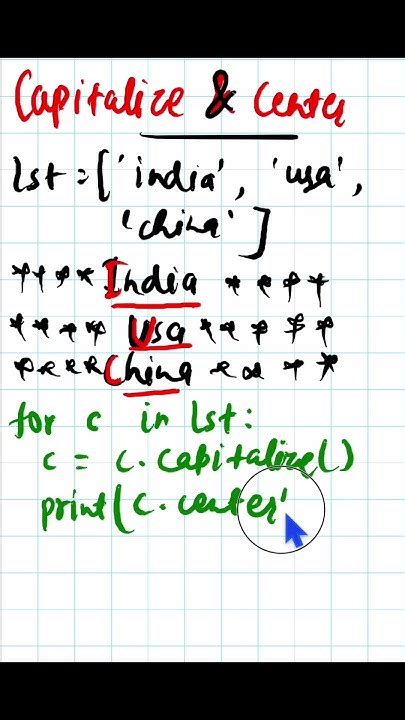 Capitalize & Center
lst = ['india', 'usa',
'china']
**** India ****
**** Usa *****
**** China ****
for c in lst:
c = c.capitalize()
print(c.center'